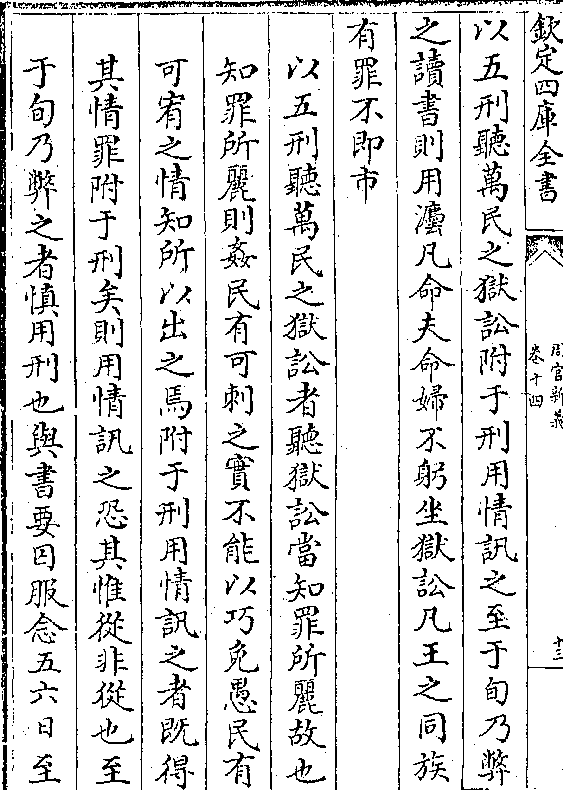 欽定四庫全書
周官新義
卷十四
十三
以五刑聽萬民之獄訟附于刑用情訊之至于旬乃弊
之讀書則用灋凡命夫命婦不躬坐獄訟凡王之同族
有罪不即市
以五刑聽萬民之獄訟者聽獄訟當知罪所麗故也
知罪所麗則姦民有可刺之實不能以巧免愚民有
可宥之情知所以出之焉附于刑用情訊之者既得
其情罪附于刑矣則用情訊之恐其惟從非從也至
于旬乃弊之者慎用刑也與書要囚服念五六日至